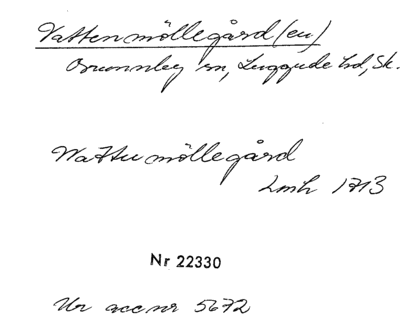 Vattenmöllegård(en)
Brunnby sn, Luggude hd, Sk.
Wattumöllegård
Lmh 1713
Nr 22330
Ur acc nr 5672